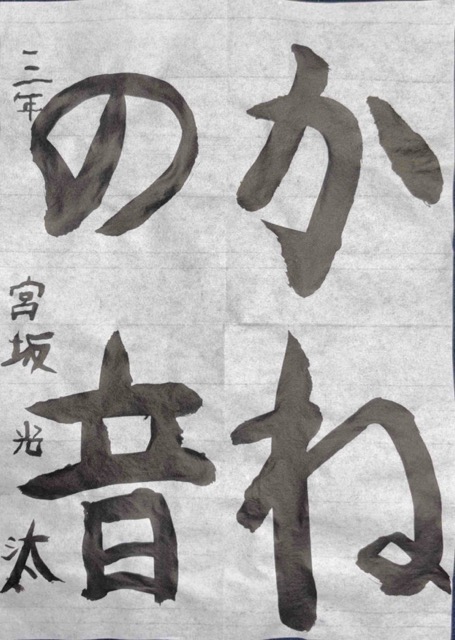 かね
の音
三年 宮坂光汰